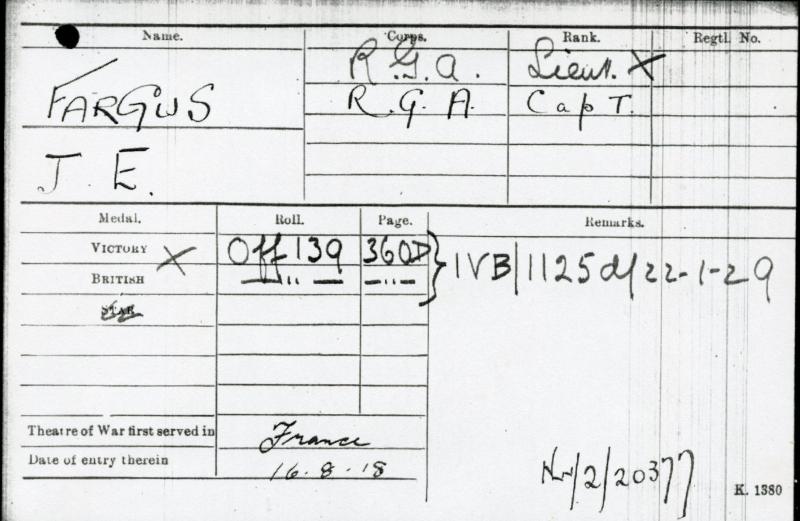 Name. Corps. Rank. Regtl. No.
FARGUS R.G.A. Lieut. X
R.G.A. Capt.
J. E.
Medal. Roll. Page. Remarks.
VICTORY X Off 139 360D } IVB/1125 d/22-1-29
BRITISH —"— —"—
STAR
Theatre of War first served in France
Date of entry therein 16.8.18
/2/20377
K. 1380